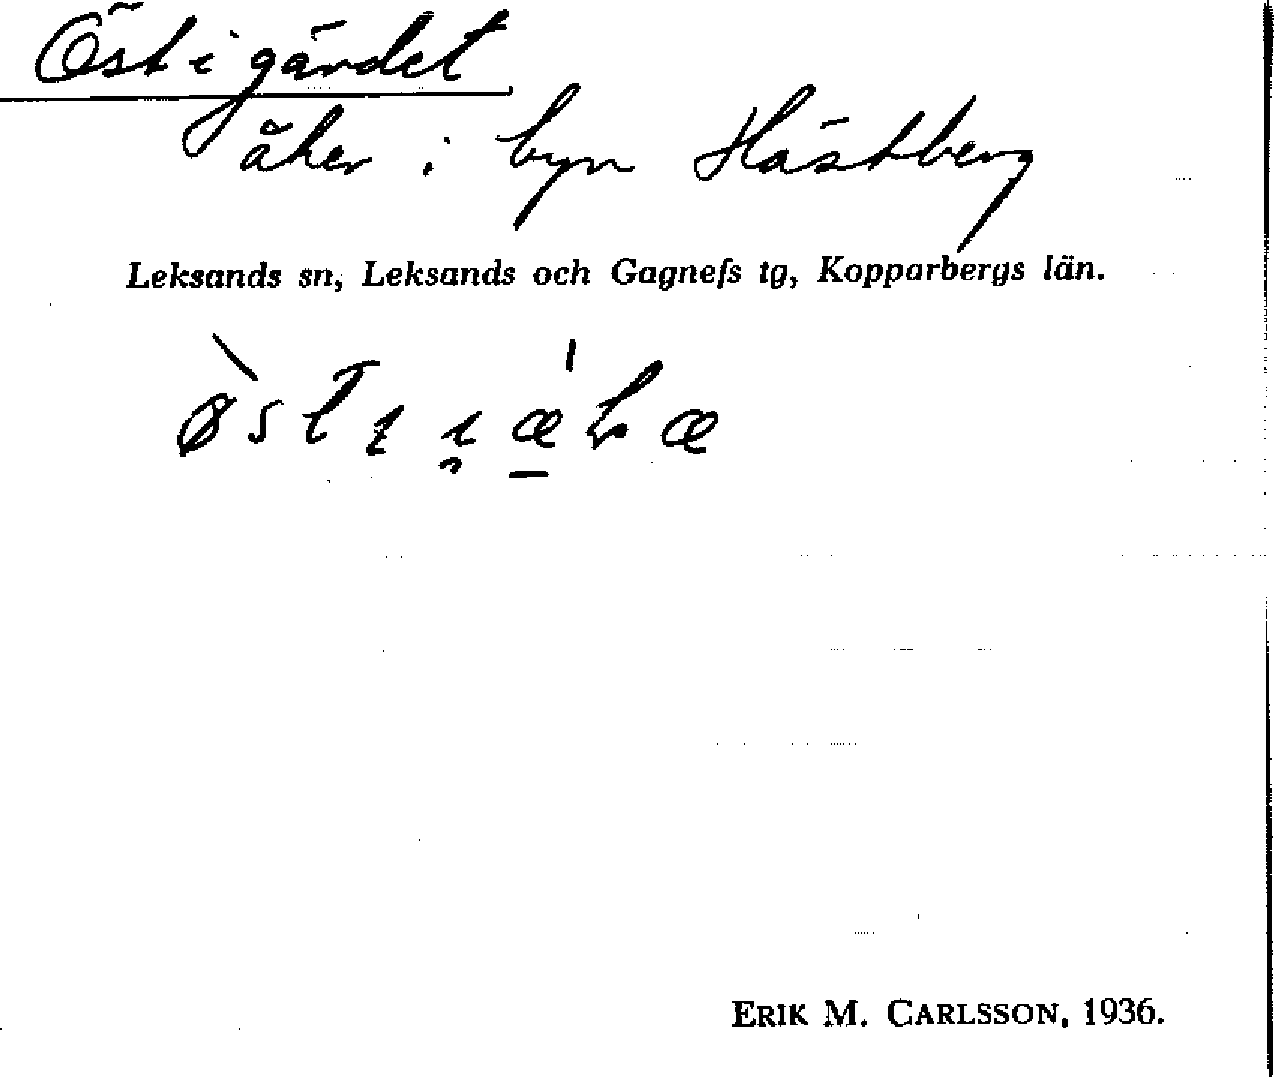 Öst i gärdet
åker i byn Hästberg
Leksands sn, Leksands och Gagnefs tg, Kopparbergs län.
ERIK M. CARLSSON, 1936.